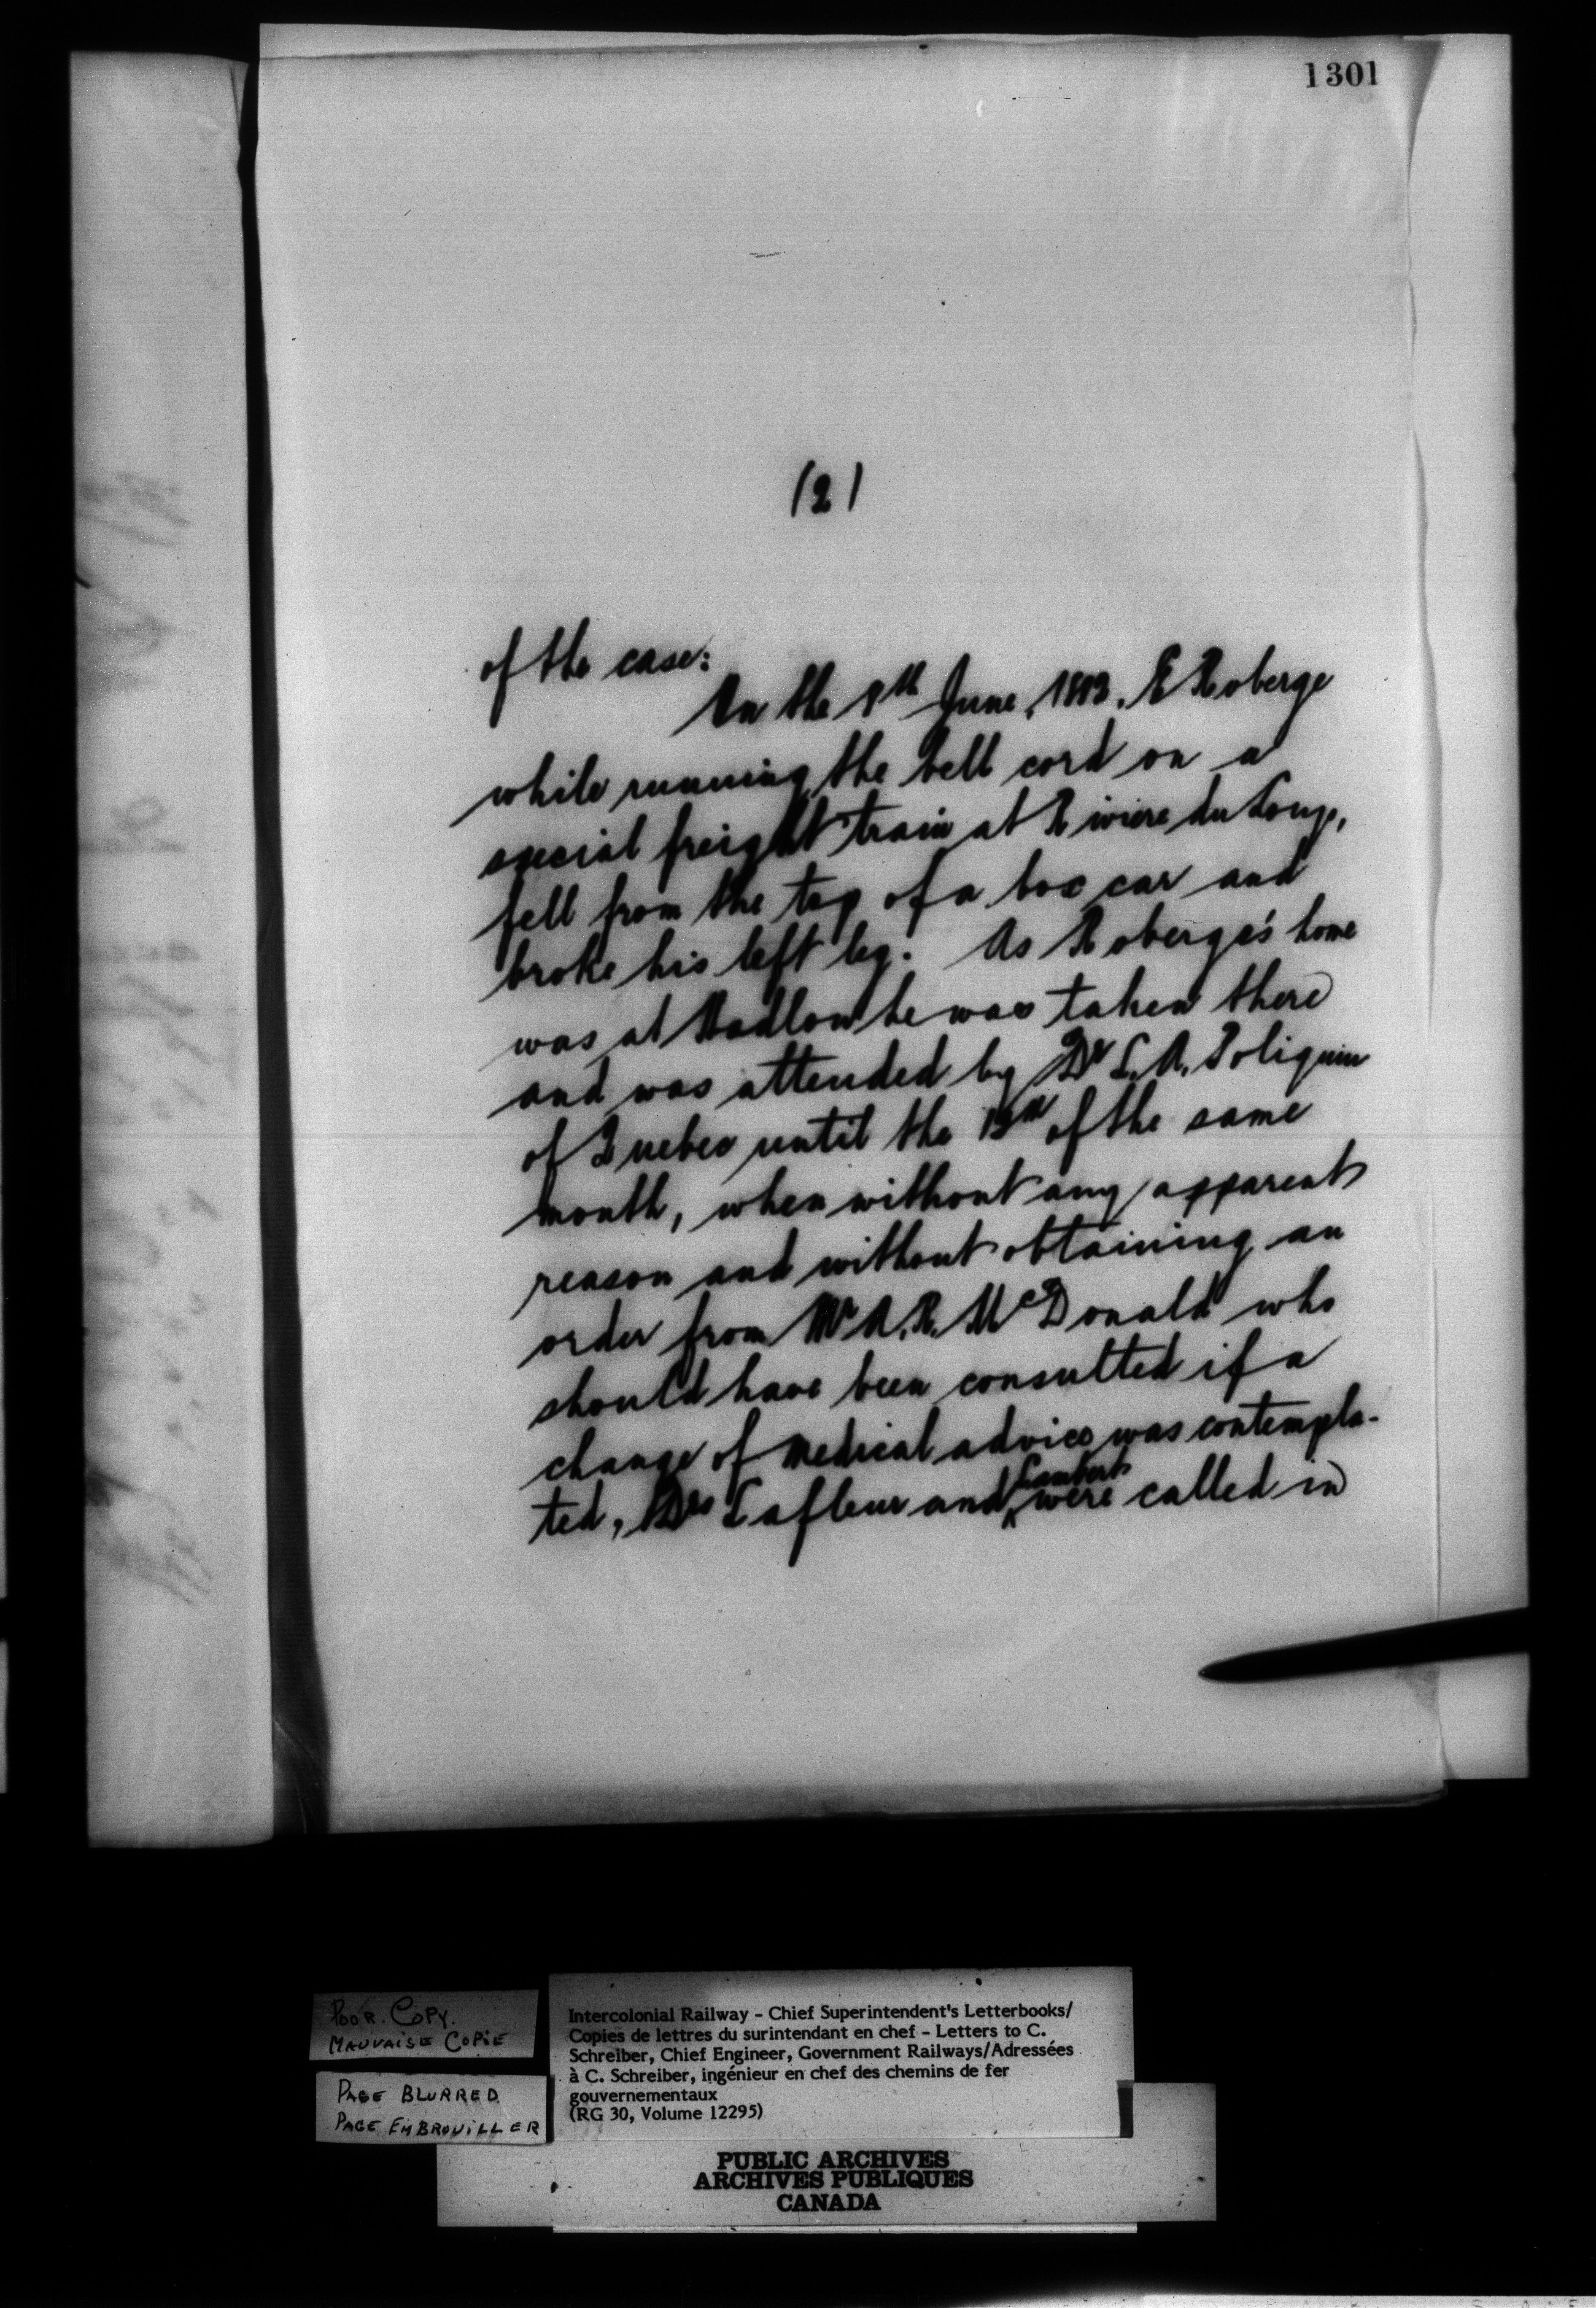 1301
(2)
of the case:
On the 8th June, 1893, E Roberge
while running the bell cord on a
special freight train at Riviere du Loup,
fell from the top of a box car and
broke his left leg. As Roberge's home
was at Hadlow he was taken there
and was attended by Dr L. A. Poliquin
of Quebec until the of the same
month, when without any apparent
reason and without obtaining an
order from Mr A. R. McDonald who
should have been consulted if a
change of medical advice was contempla-
ted, Drs Lafleur and Lambert were called in
POOR. COPY.
MAUVAISE COPIE
PAGE BLURRED
PAGE EMBROUILLER
Intercolonial Railway - Chief Superintendent's Letterbooks/
Copies de lettres du surintendant en chef - Letters to C.
Schreiber, Chief Engineer, Government Railways/Adressées
à C. Schreiber, ingénieur en chef des chemins de fer
gouvernementaux
(RG 30, Volume 12295)
PUBLIC ARCHIVES
ARCHIVES PUBLIQUES
CANADA